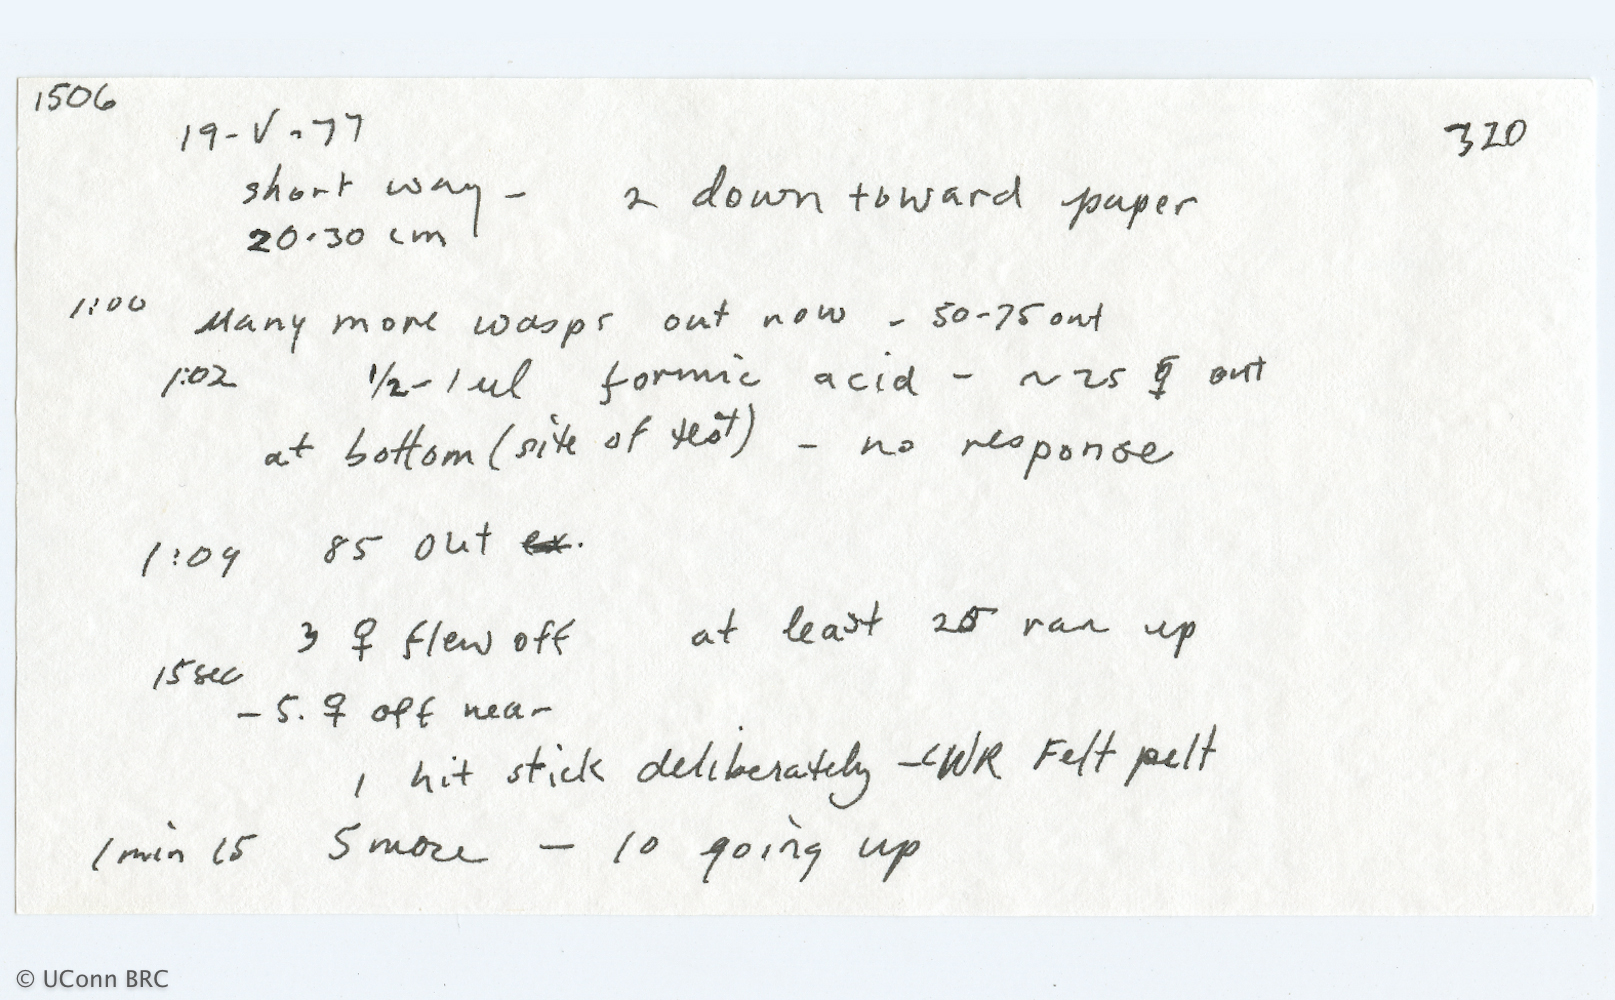 1506
19-V-77
320
short way - 2 down toward paper
20-30 cm
1:00 Many more wasps out now - 50-75 out
1:02 1/2-1 ul formic acid - ~25 ☿ out
at bottom (site of test) - no response
1:09 85 out
3 ♀ flew off at least 25 ran up
15 sec
- 5. ♀ off near
1 hit stick deliberately - CWR Felt pelt
1 min 15 5 more - 10 going up
© UConn BRC